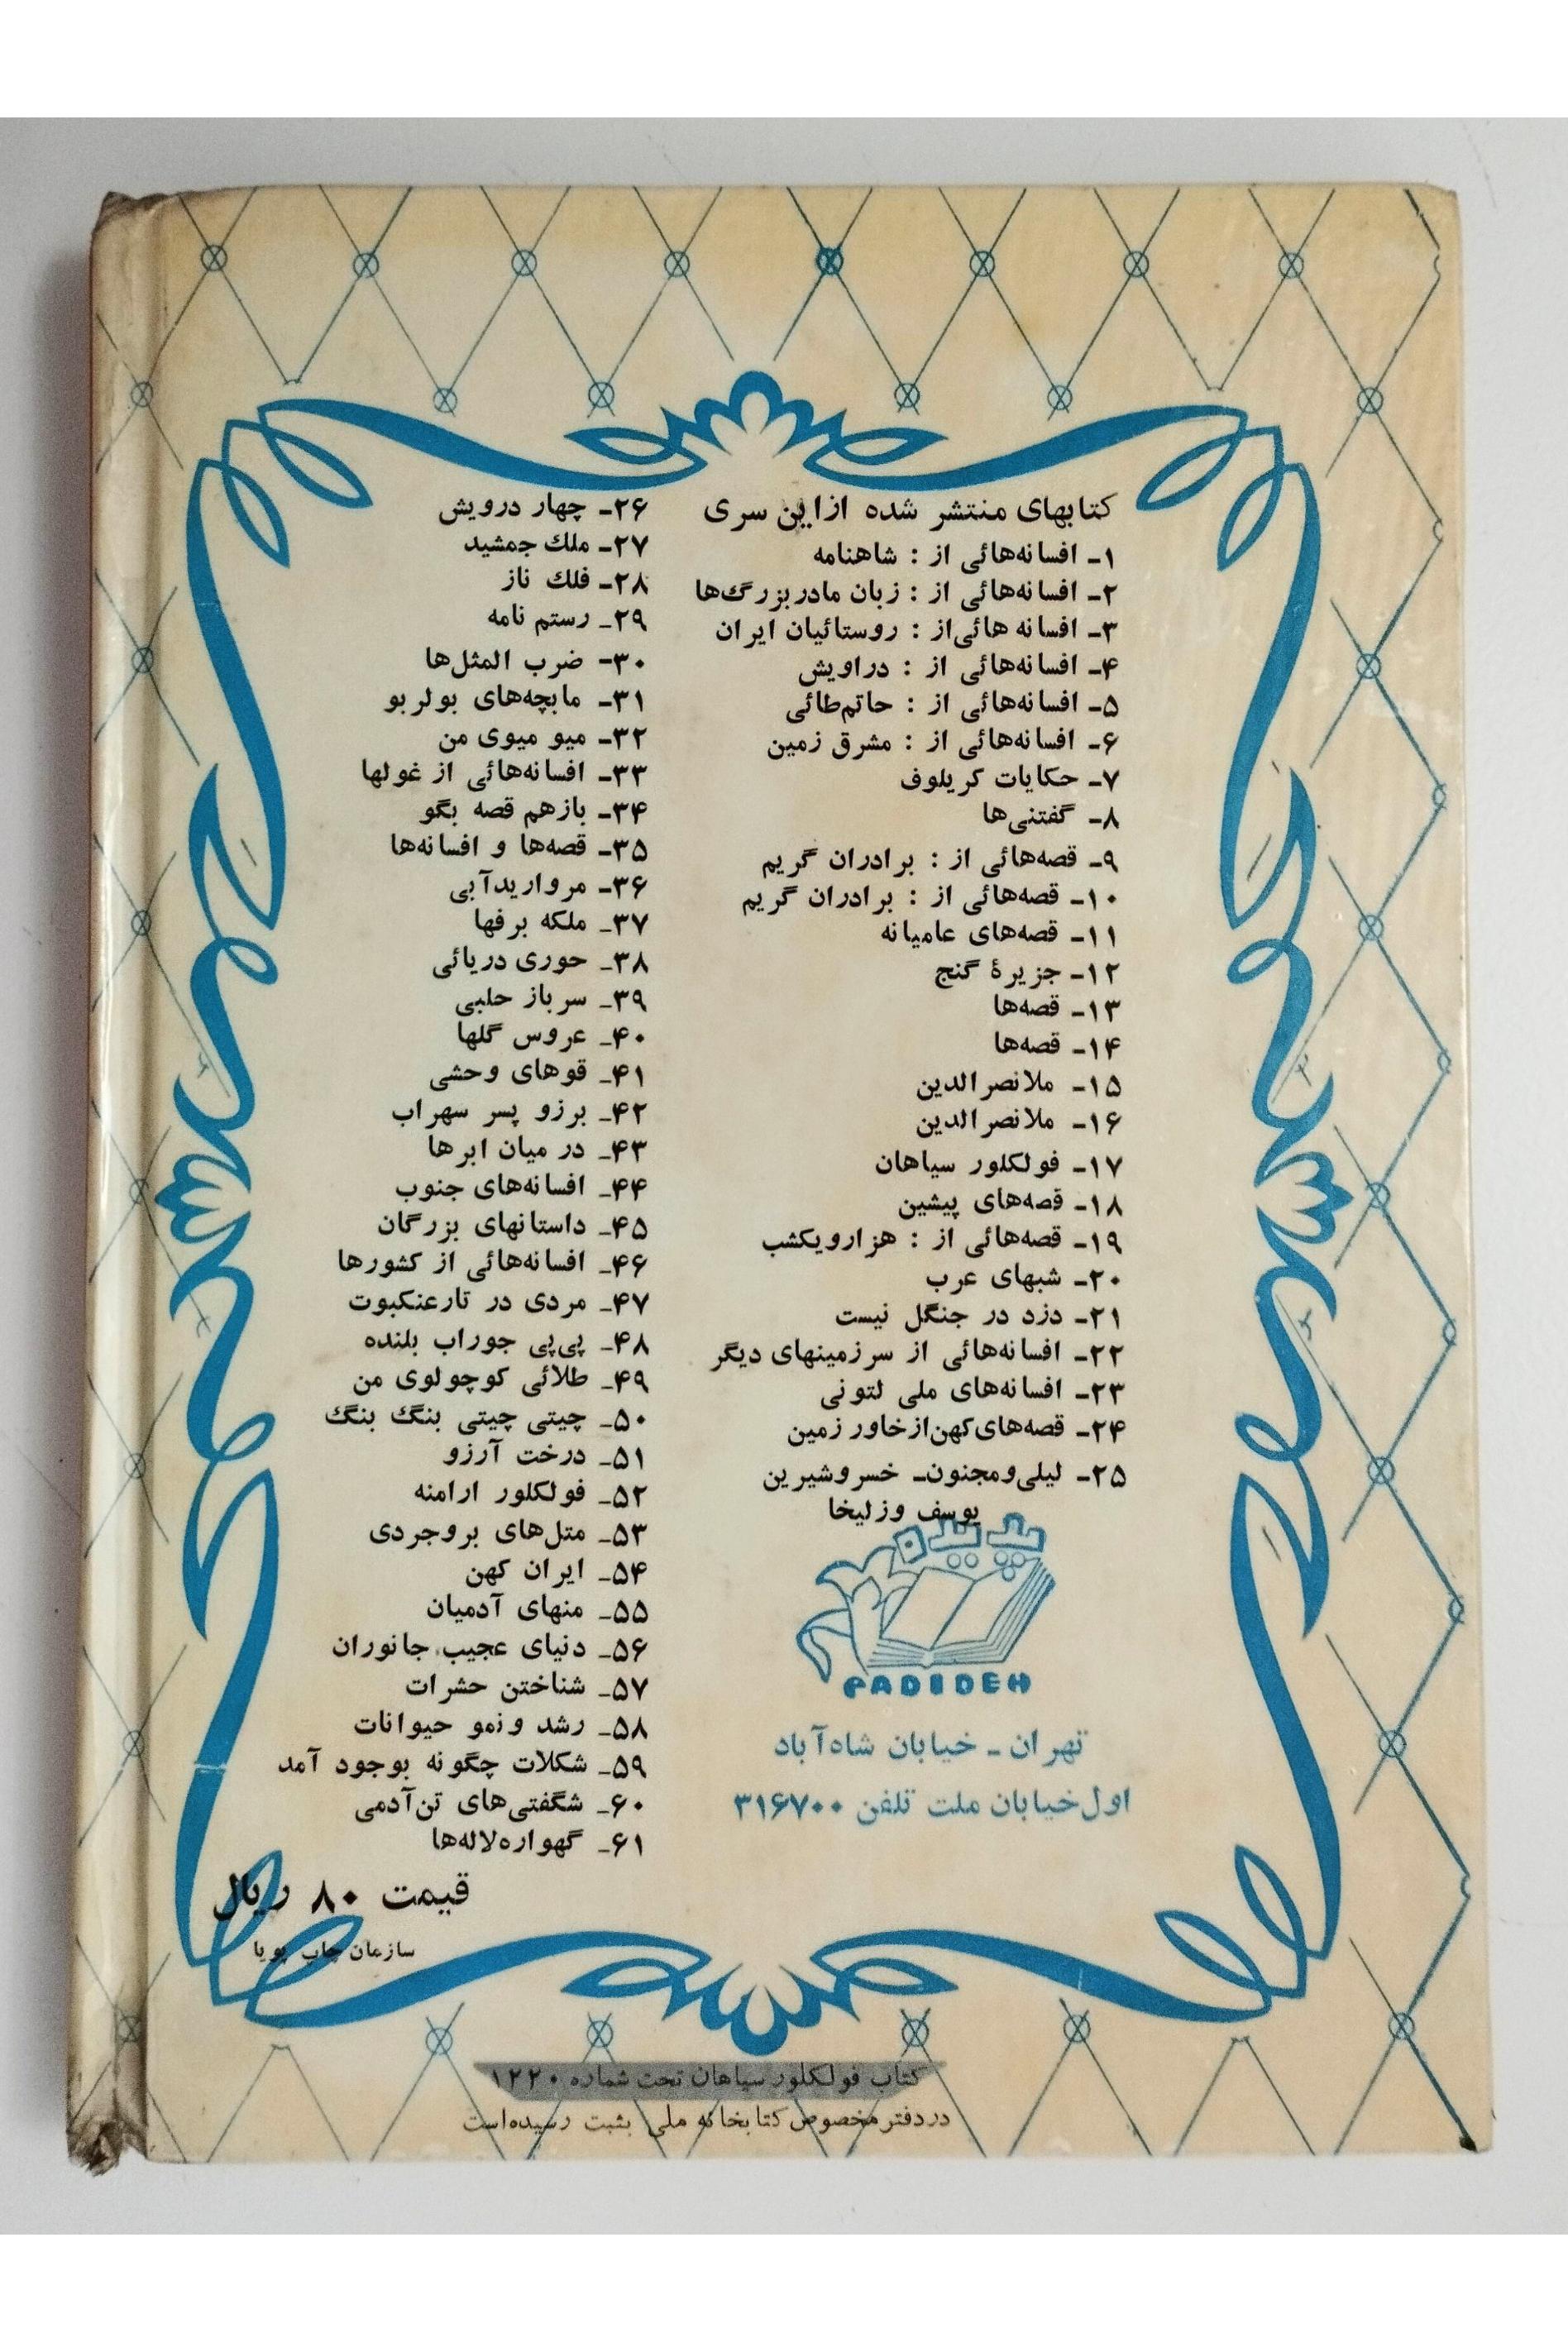 کتابهای منتشر شده ازاین سری
۱- افسانه‌هائی از : شاهنامه
۲- افسانه‌هائی از : زبان مادربزرگ‌ها
۳- افسانه هائی‌از : روستائیان ایران
۴- افسانه‌هائی از : دراویش
۵- افسانه‌هائی از : حاتم‌طائی
۶- افسانه‌هائی از : مشرق زمین
۷- حکایات کریلوف
۸- گفتنی‌ها
۹- قصه‌هائی از : برادران گریم
۱۰- قصه‌هائی از : برادران گریم
۱۱- قصه‌های عامیانه
۱۲- جزیرهٔ گنج
۱۳- قصه‌ها
۱۴- قصه‌ها
۱۵- ملانصرالدین
۱۶- ملانصرالدین
۱۷- فولکلور سیاهان
۱۸- قصه‌های پیشین
۱۹- قصه‌هائی از : هزارویکشب
۲۰- شبهای عرب
۲۱- دزد در جنگل نیست
۲۲- افسانه‌هائی از سرزمینهای دیگر
۲۳- افسانه‌های ملی لتونی
۲۴- قصه‌های‌کهن‌ازخاور زمین
۲۵- لیلی‌ومجنون- خسروشیرین
یوسف وزلیخا
پدیده
PADIDEH
تهران - خیابان شاه‌آباد
اول‌خیابان ملت تلفن ۳۱۶۷۰۰
۲۶- چهار درویش
۲۷- ملك جمشید
۲۸- فلك ناز
۲۹- رستم نامه
۳۰- ضرب المثل‌ها
۳۱- مابچه‌های بولربو
۳۲- میو میوی من
۳۳- افسانه‌هائی از غولها
۳۴- بازهم قصه بگو
۳۵- قصه‌ها و افسانه‌ها
۳۶- مرواریدآبی
۳۷- ملکه برفها
۳۸- حوری دریائی
۳۹- سرباز حلبی
۴۰- عروس گلها
۴۱- قوهای وحشی
۴۲- برزو پسر سهراب
۴۳- در میان ابرها
۴۴- افسانه‌های جنوب
۴۵- داستانهای بزرگان
۴۶- افسانه‌هائی از کشورها
۴۷- مردی در تارعنکبوت
۴۸- پی‌پی جوراب بلنده
۴۹- طلائی کوچولوی من
۵۰- چیتی چیتی بنگ بنگ
۵۱- درخت آرزو
۵۲- فولکلور ارامنه
۵۳- متل‌های بروجردی
۵۴- ایران کهن
۵۵- منهای آدمیان
۵۶- دنیای عجیب جانوران
۵۷- شناختن حشرات
۵۸- رشد ونمو حیوانات
۵۹- شکلات چگونه بوجود آمد
۶۰- شگفتی‌های تن‌آدمی
۶۱- گهواره‌لاله‌ها
قیمت ۸۰ ریال
سازمان چاپ پویا
کتاب فولکلور سیاهان تحت شماره ۱۲۲۰
دردفتر مخصوص کتابخانه ملی بثبت رسیده‌است